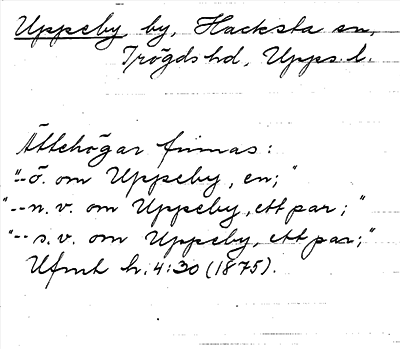 Uppeby by, Hacksta sn,
Trögds hd, Upps. l.
Ättehögar finnas:
"--ö. om Uppeby, en;"
"--n.v. om Uppeby, ett par;"
"--s.v. om Uppeby, ett par;"
Ufmt h. 4:30 (1875).